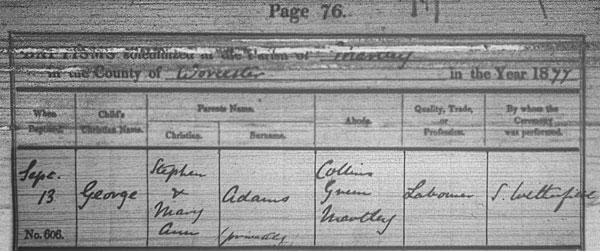 Page 76.
BAPTISMS solemnized in the Parish of
in the County of Worcester in the Year 1877
When Baptized.
Child's Christian Name.
Parents Name.
Christian.
Surname.
Abode.
Quality, Trade, or Profession.
By whom the Ceremony was performed.
Sept. 13
No. 606.
George
Stephen & Mary Ann
Adams
(privately)
Collins Green Martley
Labourer
S.